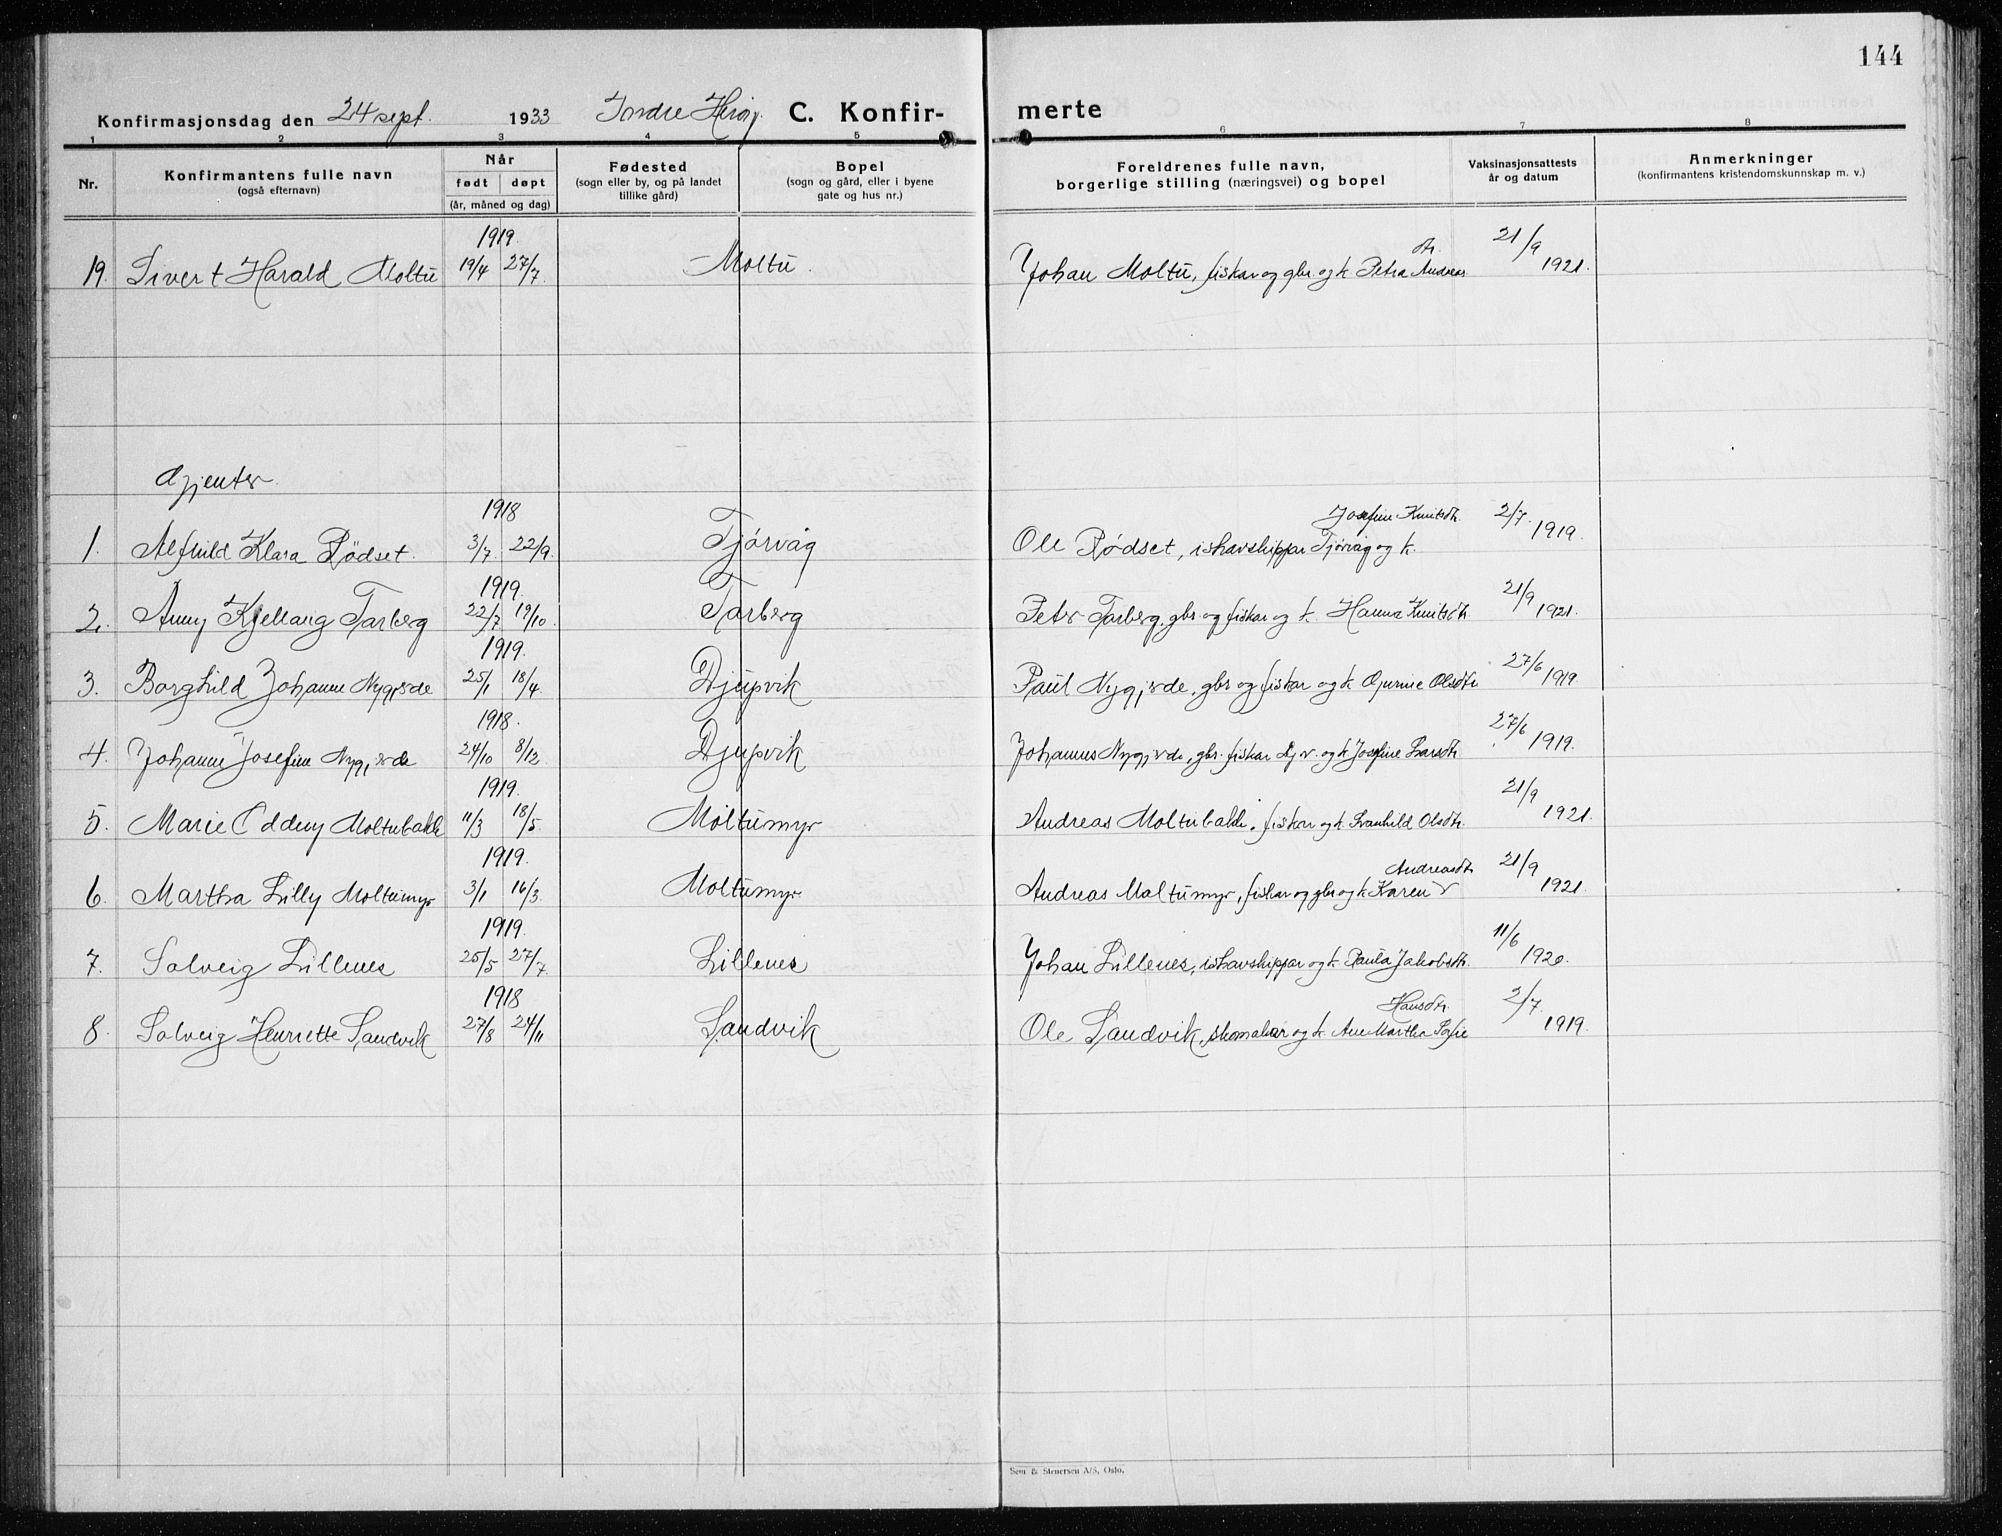 144
Konfirmasjonsdag den 24 sept. 1933 Indre Herøy. C. Konfir- merte
1 2 3 4 5 6 7 8
Nr. Konfirmantens fulle navn (også efternavn) Når født døpt (år, måned og dag) Fødested (sogn eller by, og på landet tillike gård) Bopel (sogn og gård, eller i byene gate og hus nr.) Foreldrenes fulle navn, borgerlige stilling (næringsvei) og bopel Vaksinasjonsattests år og datum Anmerkninger (konfirmantens kristendomskunnskap m. v.)
1919.
19. Sivert Harald Moltu 19/4 27/7. Moltu. Johan Moltu, fiskar og gbr. og k. Petra Andreas dtr. 21/9 1921.
Gjenter.
1918
1. Alfhild Klara Rödset. 3/7. 22/9. Tjørvåg Ole Rødset, ishavskippar Tjørvåg og k. Josefine Knutsdtr. 2/7. 1919.
1919.
2. Anny Kjellaug Tarberg 22/7 19/10. Tarberg Peter Tarberg, gbr. og fiskar og k. Hanna Knutsdtr. 21/9 1921.
1919.
3. Borghild Johanne Nygjerde 25/1 18/4. Djupvik Paul Nygjerde, gbr og fiskar og k. Olsdtr 27/6 1919
1918.
4. Johanne Josefine Nygjerde 24/10 8/12. Djupvik Johannes Nygjerde, gbr. fiskar Djv. og k. Josefine Larsdtr. 27/6 1919.
1919.
5. Marie Oddny Moltubakk 11/3 18/5. Moltumyr Andreas Moltubakk, fiskar og k. Svanhild Olsdtr. 21/9 1921.
1919.
6. Martha Lilly Moltumyr 3/1 16/3. Moltumyr Andreas Moltumyr, fiskar og gbr og k. Karen Andreasdtr. 21/9 1921
1919.
7. Solveig Lillenes 25/5 27/7. Lillenes Johan Lillenes, ishavskippar og k. Paula Jakobsdtr. 11/6 1920.
1918
8. Solveig Henriette Sandvik 27/8 24/11 Sandvik Ole Sandvik, skomakar og k. Ane Martha Sofie Hansdtr. 2/7. 1919.
Sem & Stenersen A/S, Oslo.